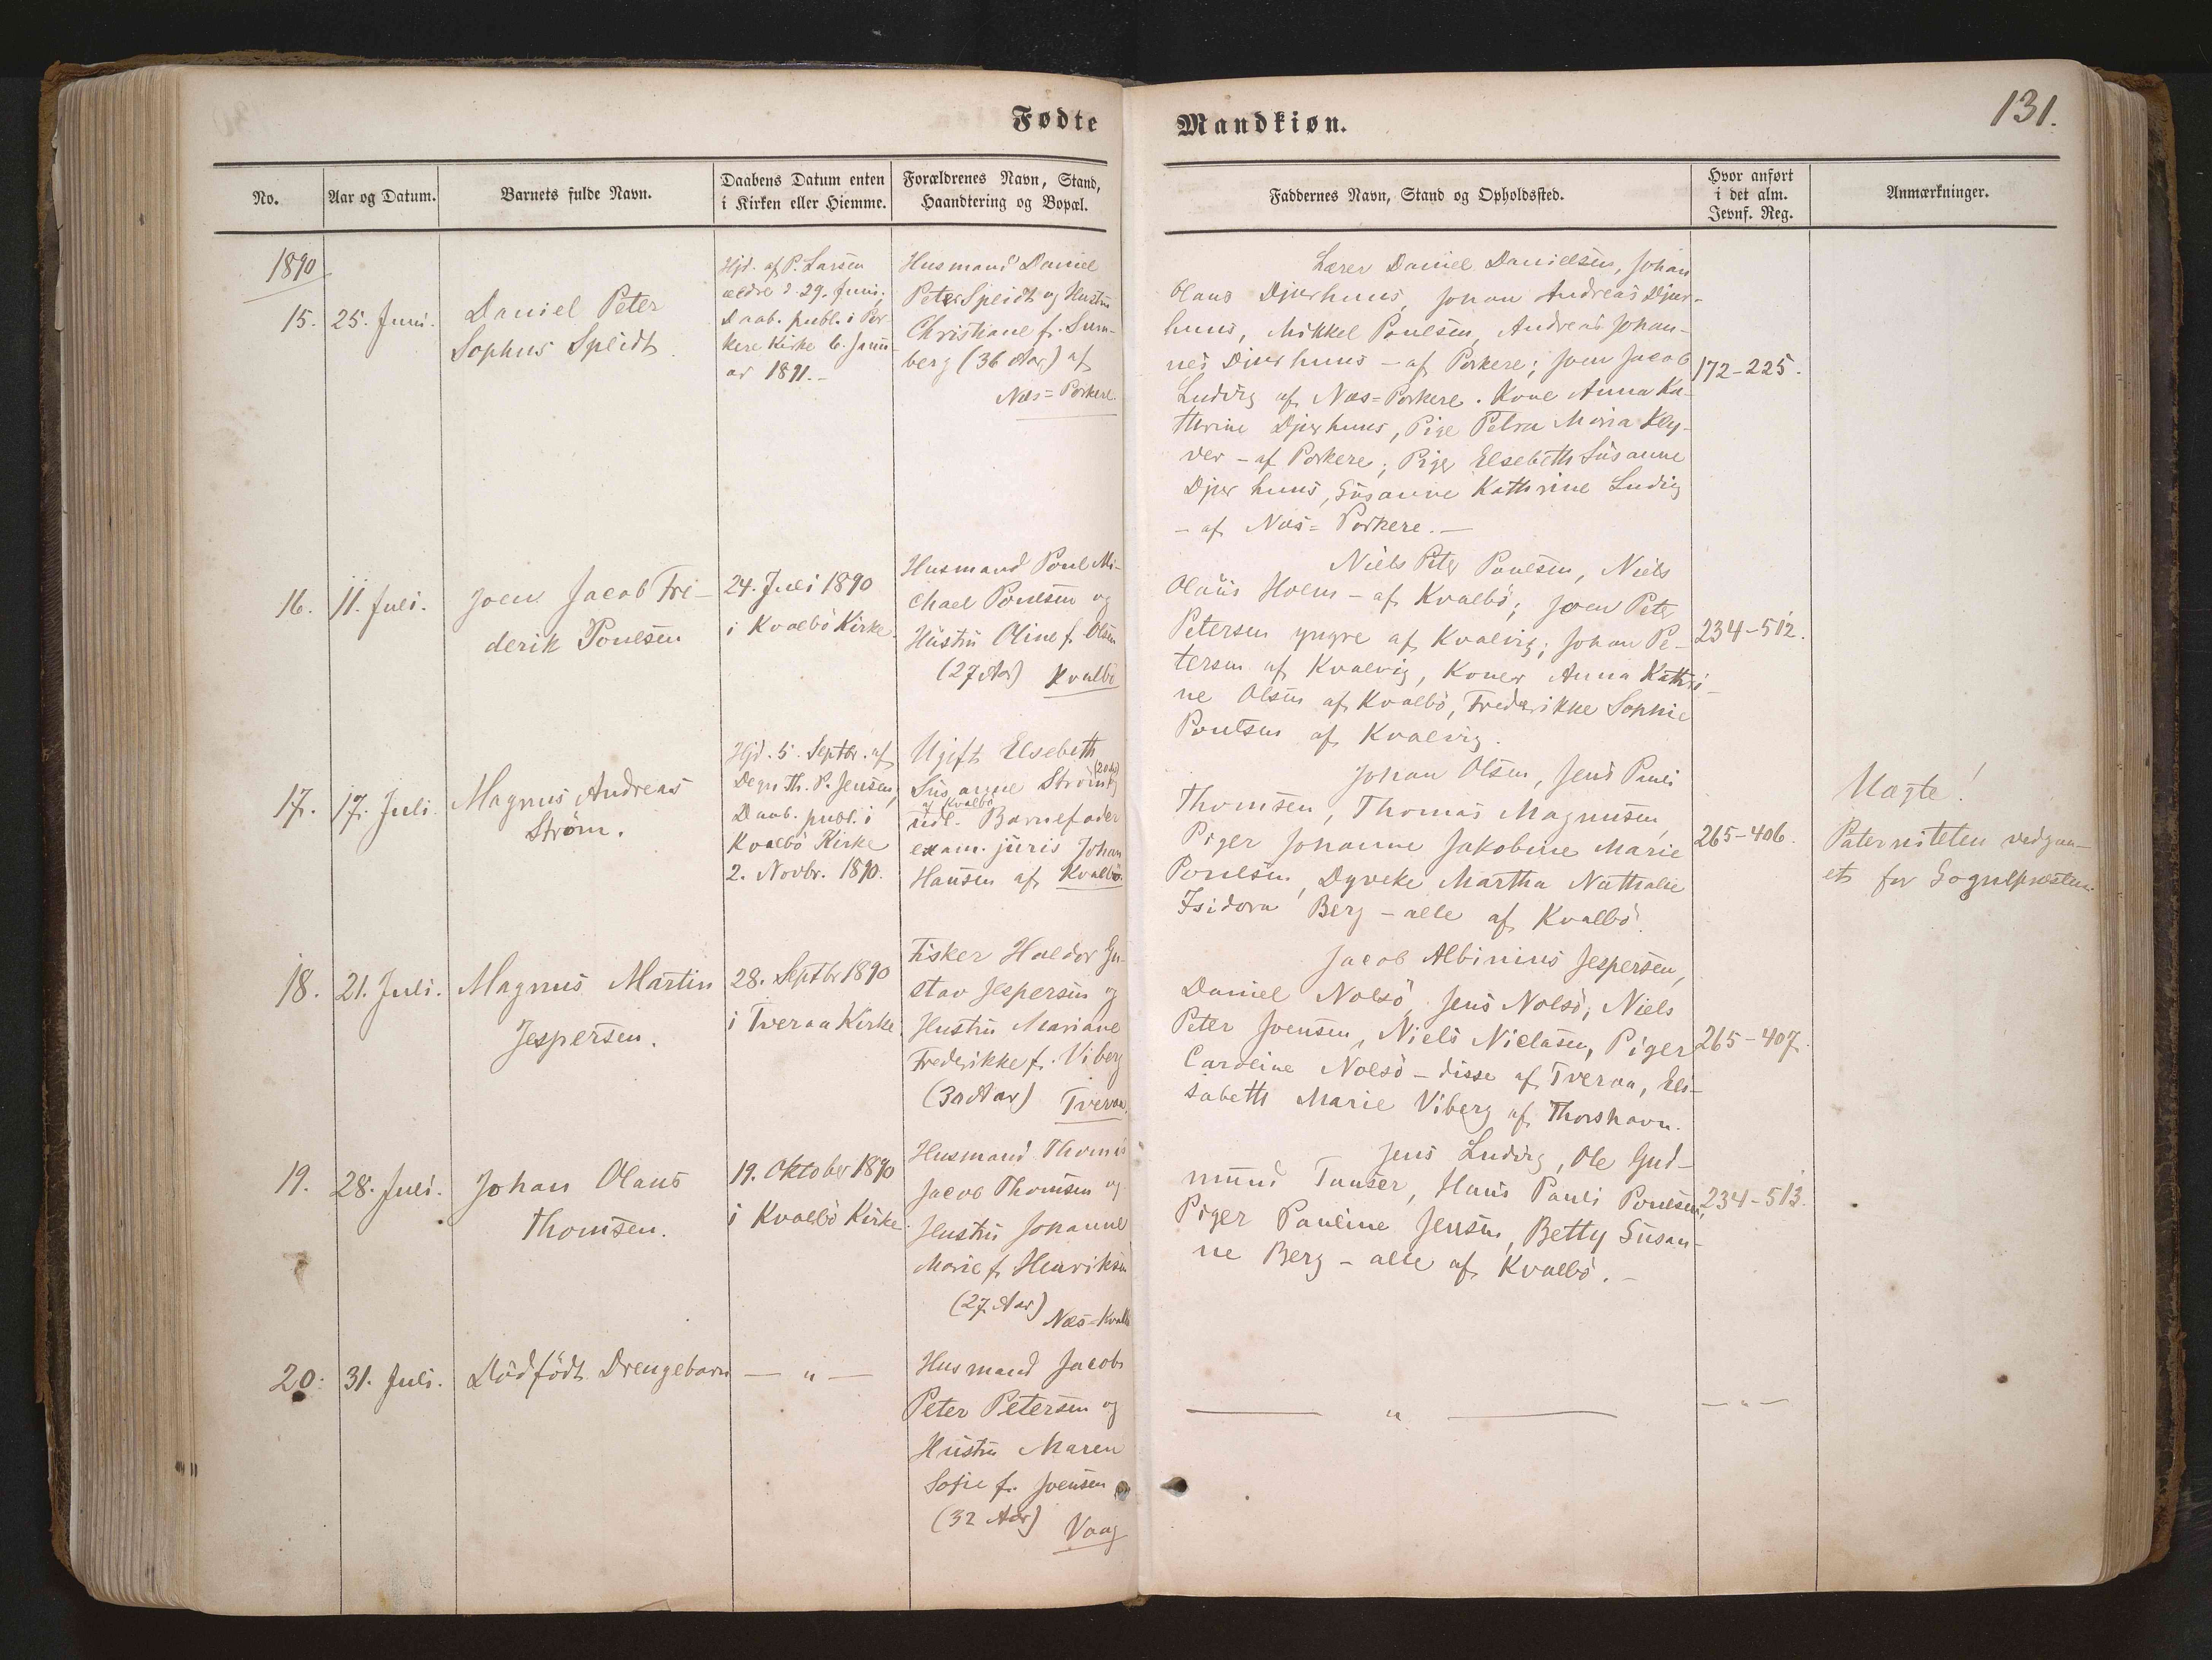 Fødte
Mandkiøn.
131.
No.
Aar og Datum.
Barnets fulde Navn.
Daabens Datum enten
i Kirken eller Hiemme.
Forældrenes Navn, Stand,
Haandtering og Bopæl.
Faddernes Navn, Stand og Opholdssted.
Hvor anført
i det alm.
Jevnf. Reg.
Anmærkninger.
1890
15.
25. Juni.
Daniel Peter
Sophus Speidt
Hjd. af P. Larsen
ældre d. 29. Juni;
Daab. publ. i Por
kere Kirke 6. Janu-
ar 1891.-
Husmand Daniel
Peter Speidt og Hustru
Christiane f. Sum-
berg (36 Aar) af
Næs=Porkere.
Lærer Daniel Danielsen, Johan
Olaus Djurhuus, Johan Andreas Djur-
huus, Mikkel Poulsen, Andreas Johan-
nes Djurhuus - af Porkere; Joen Jacob
Ludvig af Næs=Porkere. Kone Anna Ka-
thrine Djurhuus, Pige Petra Maria Kly-
ver - af Porkere; Piger Elsebeth Susanne
Djurhuus, Susanne Kathrine Ludvig
- af Næs=Porkere.-
172-225.
16.
11. Juli.
Joen Jacob Fre-
derik Poulsen
24. Juli 1890
i Kvalbö Kirke.
Husmand Poul Mi-
chael Poulsen og
Hustru Oline f. Olsen
(27 Aar) Kvalbö
Niels Peter Poulsen, Niels
Olaus Holm - af Kvalbö; Joen Peter
Petersen yngre af Kvalvig; Johan Pe-
tersen af Kvalvig, Koner Anna Kathri-
ne Olsen af Kvalbö, Frederikke Sophie
Poulsen af Kvalvig.
234-512.
17.
17. Juli.
Magnus Andreas
Ström.
Hjd. 5. Septbr. af
Degn Th. P. Jensen,
Daab. publ. i
Kvalbö Kirke
2. Novbr. 1890.
Ugift Elsebeth
Susanne Ström
af Kvalbö
udl. Barnefader
exam. juris Johan
Hansen af Kvalbö.
Johan Olsen, Jens Pauli
Thomsen, Thomas Magnusen,
Piger Johanne Jakobine Marie
Poulsen, Dyveke Martha Nathalie
Isidora Berg - alle af Kvalbö.
265-406.
Uægte!
Paterniteten vedgaa-
et for Sognepræsten.
18.
21. Juli.
Magnus Martin
Jespersen.
28. Septbr 1890
i Tveraa Kirke
Fisker Haldor Gu-
stav Jespersen og
Hustru Mariane
Frederikke f. Viberg
(30 Aar) Tveraa.
Jacob Albinius Jespersen,
Daniel Nolsö, Jens Nolsö, Niels
Peter Joensen, Niels Nielasen, Piger
Caroline Nolsö - disse af Tveraa, Eli-
sabeth Marie Viberg af Thorshavn.
265-407.
19.
28. Juli.
Johan Olaus
Thomsen.
19. Oktober 1890
i Kvalbö Kirke.
Husmand Thomas
Jacob Thomsen og
Hustru Johanne
Marie f. Henriksen
(27 Aar)
Næs=Kvalbö
Jens Ludvig, Ole Gud-
mund Tauser, Hans Pauli Poulsen,
Piger Pauline Jensen, Betty Susan-
ne Berg - alle af Kvalbö.-
234-513.
20.
31. Juli.
Dödfödt Drengebarn
— " —
Husmand Jacob
Peter Petersen og
Hustru Maren
Sofie f. Joensen
(32 Aar)
Vaag
— " —
— " —